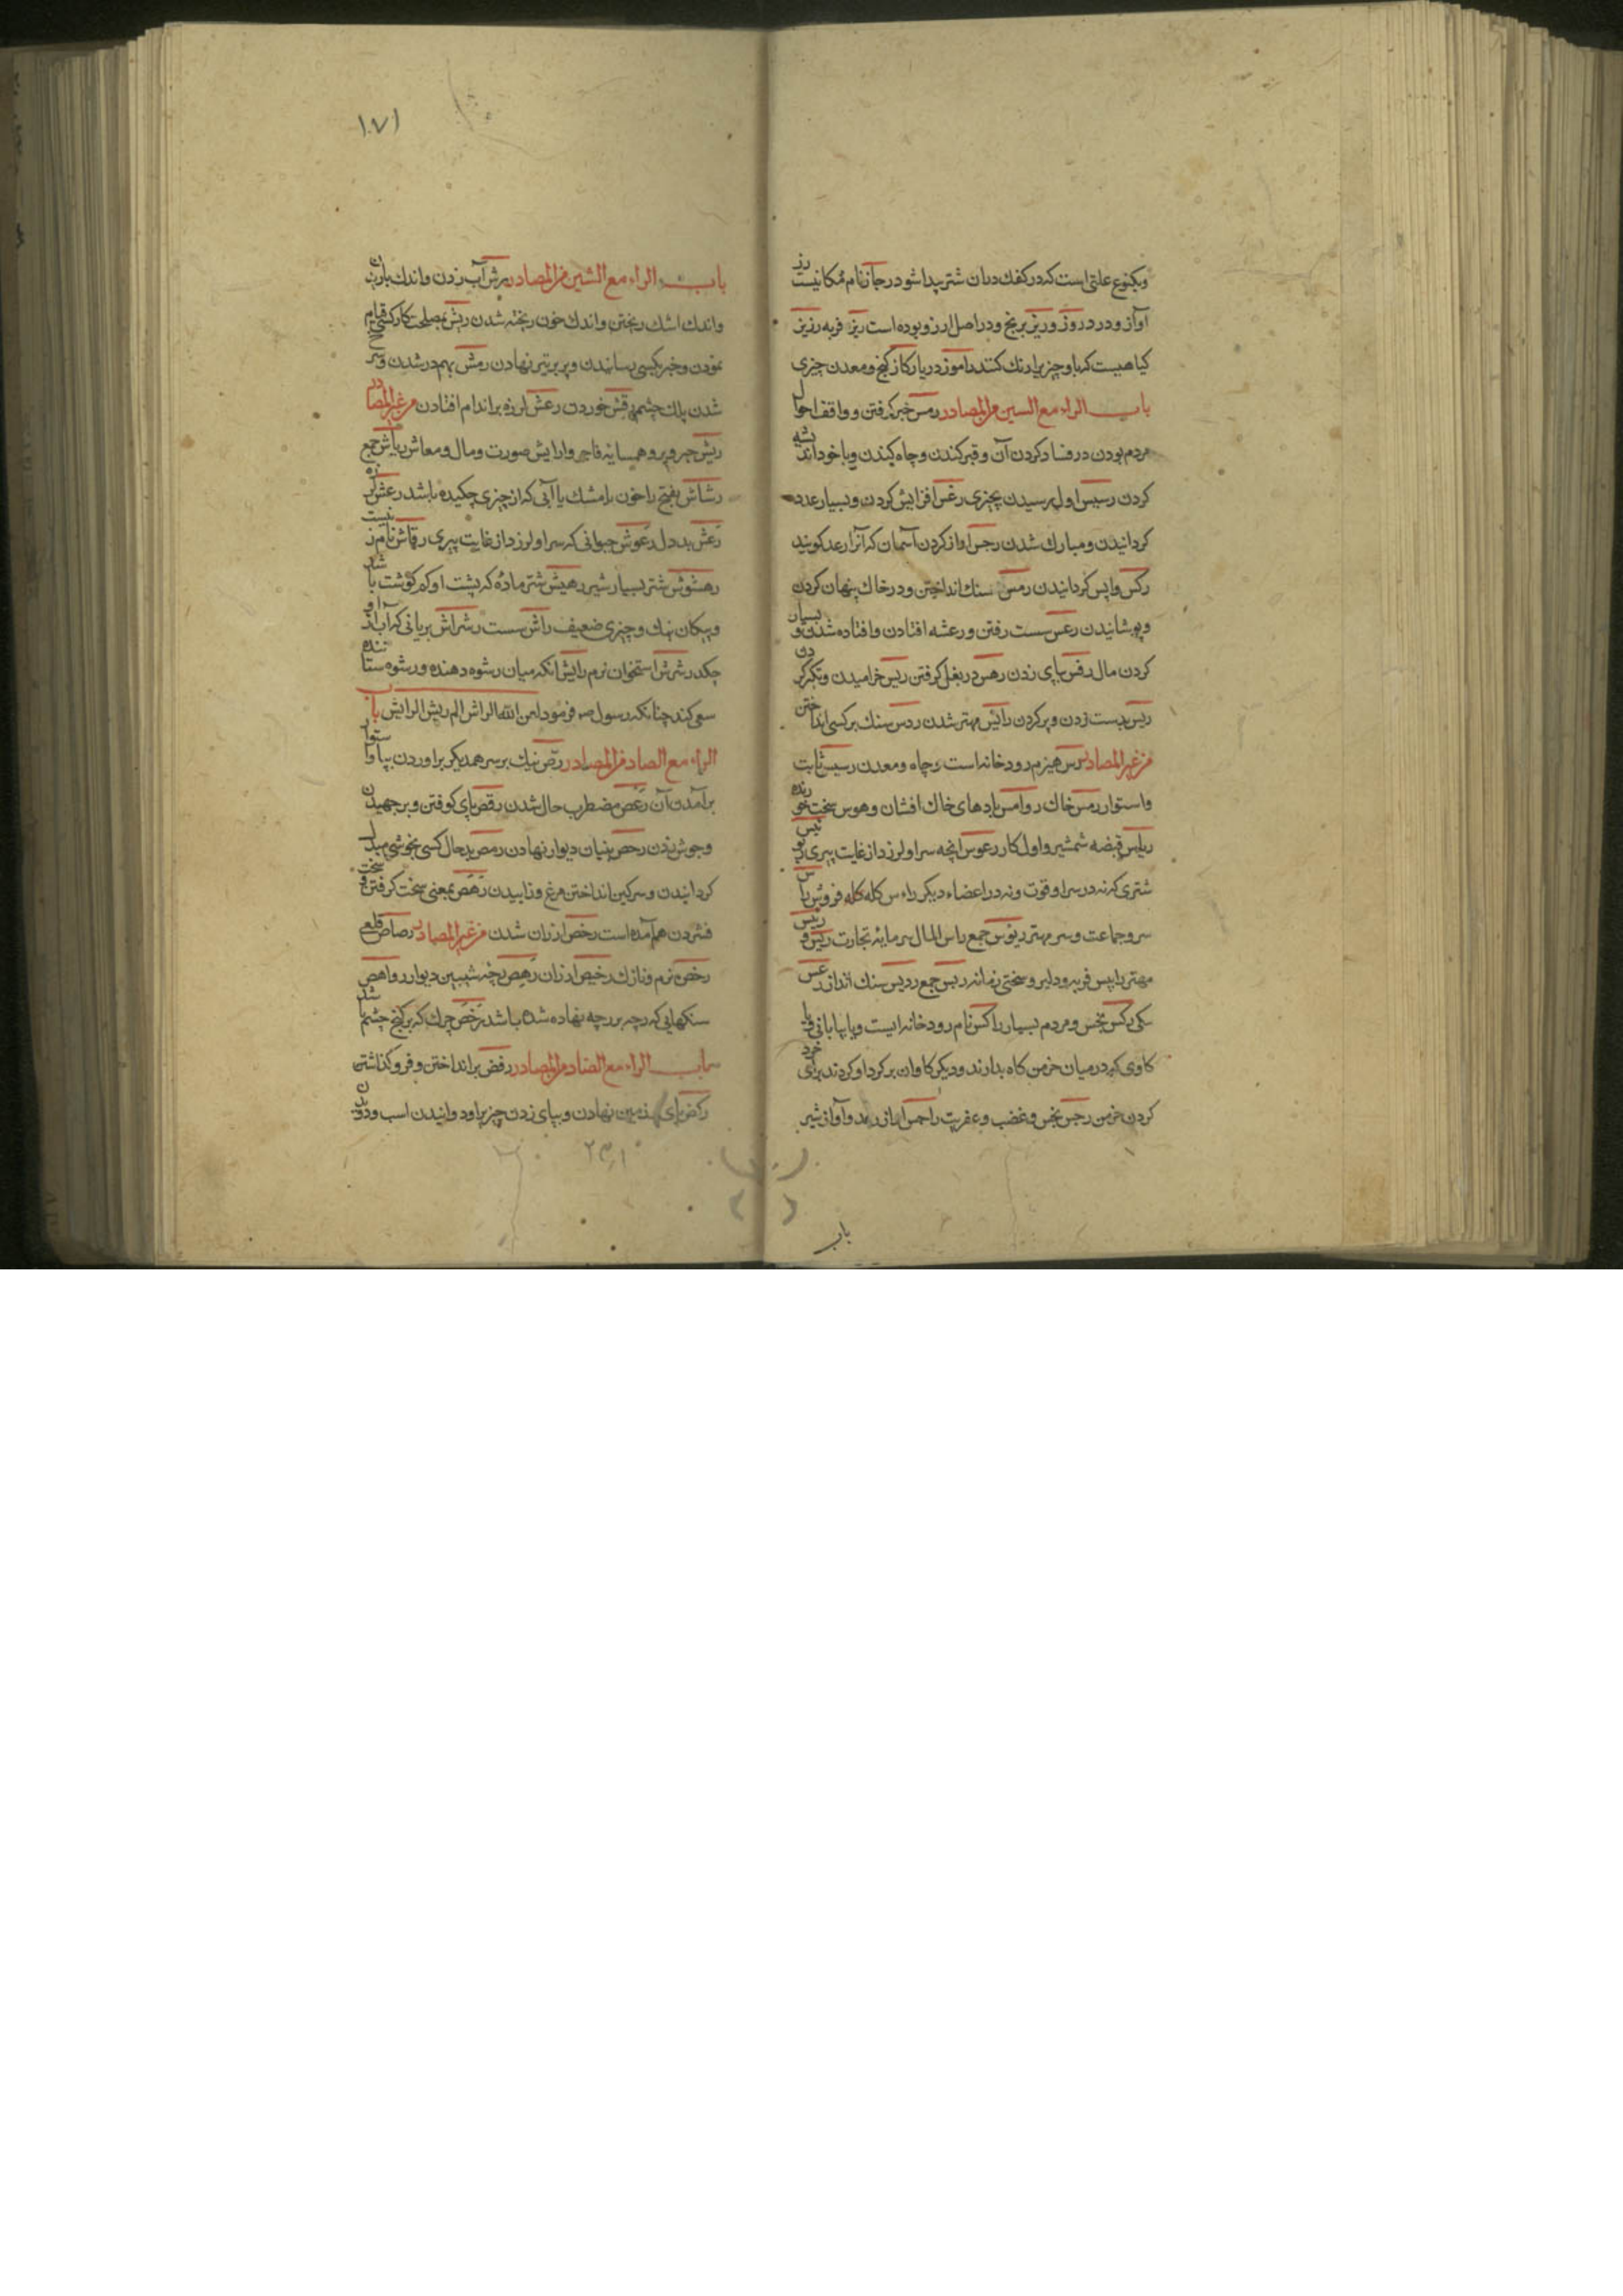 ویکنوع علتی است که در کفک دران شتر پیدا شود رجاز نام مکانیست رز
آواز و درد روز و ریز برنج و در اصل ارز و بوده است ریز فربه رزیز
کیاهیست که باو چیزیرا رنک کنند راموز دریا رکاز کنج و معدن چیزی
باب الراء مع السین من المصادر رمس خبر کرفتن و واقف احوال
مردم بودن در فساد کردن آن و قبر کندن و چاه کندن و با خود اندیشه
کردن رسیس اول رسیدن بچیزی رغس افزایش کردن و بسیار عدد
کردانیدن و مبارک شدن رجس آواز کردن آسمان که آنرا رعد کویند
رکس واپس کردانیدن رمس سنک انداختن و در خاک پنهان کردن
و پوشانیدن رعس سست رفتن و رعشه افتادن و افتاده شدن و بسیار
کردن مال رفس بپای زدن رهس در بغل کرفتن ریس خرامیدن و تکبر کردن
ریس بدست زدن و پر کردن رائس مهتر شدن ردس سنک بر کسی انداختن
من غیر المصادر رس هیزم رودخانه است و چاه و معدن رسیس ثابت
و استوار رمس خاک روامس بادهای خاک افشان و هوس سخت خورنده
ریاس قبضه شمشیر و اول کار رعوس انچه سر او لرزد از غایت پیری
شتری که نه در سر او قوت و نه در اعضاء دیکر راءس کله کله فروش راس
سر و جماعت و سر مهتر رؤس جمع راس المال سرمایه تجارت ریس و رئیس
مهتر رابس فربه و دلیر و سختی زمانه ربس جمع ردیس سنک انداز رعس
سکی رکس نجس و مردم بسیار راکس نام رودخانه ایست و یا بیابانی و یا
کاوی که در میان خرمن کاه بدارند و دیکر کاوان بر کرد او کردند برای خرد
کردن خرمن رجس نجس و غضب و عفریت راجس آواز رعد و آواز شیر
باب
۱۷۱
باب الراء مع الشین من المصادر رش آب زدن و اندک باران
و اندک اشک ریختن و اندک خون ریخته شدن ریش بمصلحت کار کسی قیام
نمودن و خبر بکسی رسانیدن و پر بر تیر نهادن رمش بهم در شدن و
شدن پلک چشم رقش خوردن رعش لرزه بر اندام افتادن من غیر المصادر
ریش جبر و پر و همسایه فاجر و ارایش صورت و مال و معاش ریاش جمع
رشاش بفتح را خون یا مشک یا آبی که از چیزی چکیده باشد رعش لرزه
رعش بددل رعوش حیوانی که سر او لرزد از غایت پیری رقاش نام زنیست
رهشوش شتر بسیار شیر رهیش شتر ماده که پشت او کم کوشت باشد
و پیکان تنک و چیزی ضعیف راش سست رشراش بریانی که آب از او
چکد رشرش استخوان نرم رایش انکه میان رشوه دهنده و رشوه ستاننده
سعی کند چنانکه رسول ص فرمود لعن الله الراش المریش الرایش باب
الراء مع الصاد من المصادر رص نیک بر سر همدیکر براوردن بنا و استوار
برآمدن آن رعص مضطرب حال شدن رقص پای کوفتن و بر جهیدن
و جوش زدن رحص بنیان دیوار نهادن رمص بد حال کسی بخوشی مبدل
کردانیدن و سرکین انداختن مرغ و زاییدن رهص بمعنی سخت کرفتن و سخت
فشردن هم آمده است رخص ارزان شدن من غیر المصادر رصاص قلعی
رخص نرم و نازک رخیص ارزان رهص چنه شیبین دیوار رواهص
سنکهایی که رجه بر رجه نهاده شده باشد رخص چرک که بر کنج چشم باشد
باب الراء مع الضاد من المصادر رفض بر انداختن و فرو کذاشتن
رکض پای بر زمین نهادن و بپای زدن چیزیرا و دوانیدن اسب و دویدن